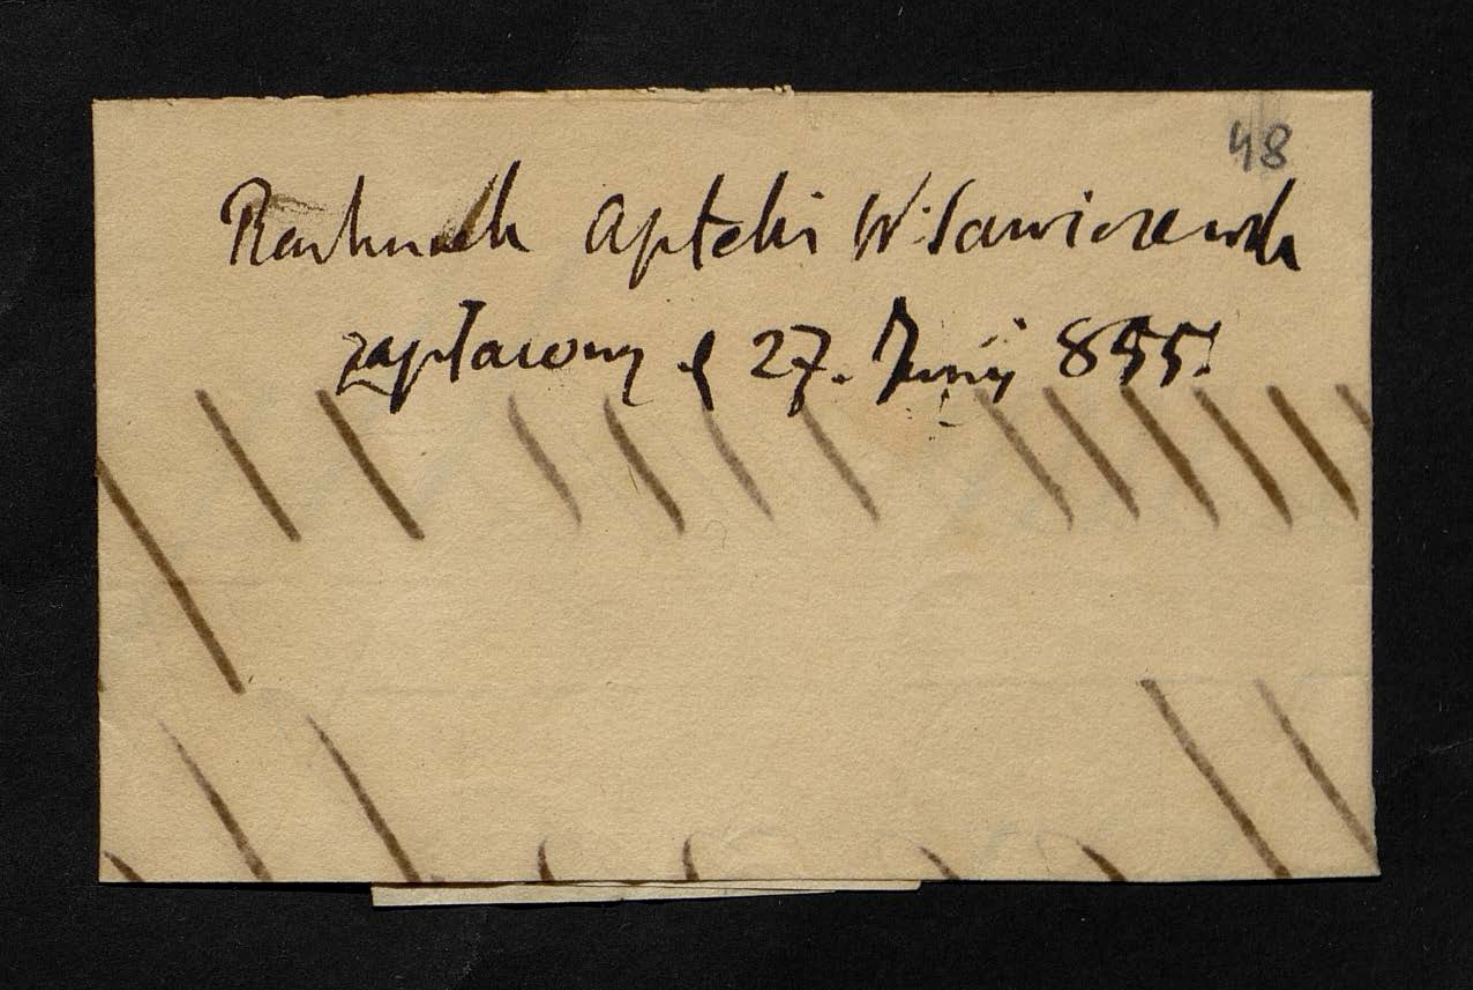 48
Rachunek Apteki W. Sawiczewsk
zapłacony d 27. Junij 855.